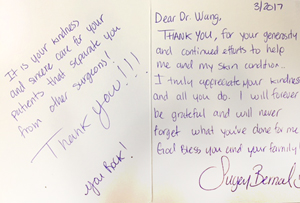 It is your kindness
and sincere care for your
patients that separate you
from other surgeons!
Thank you!!!
You Rock!
3/2017
Dear Dr. Wang,
THANK YOU, for your generosity
and continued efforts to help
me and my skin condition.
I truly appreciate your kindness
and all you do. I will forever
be grateful and will never
forget what you've done for me.
God Bless you and your family!
Bernal